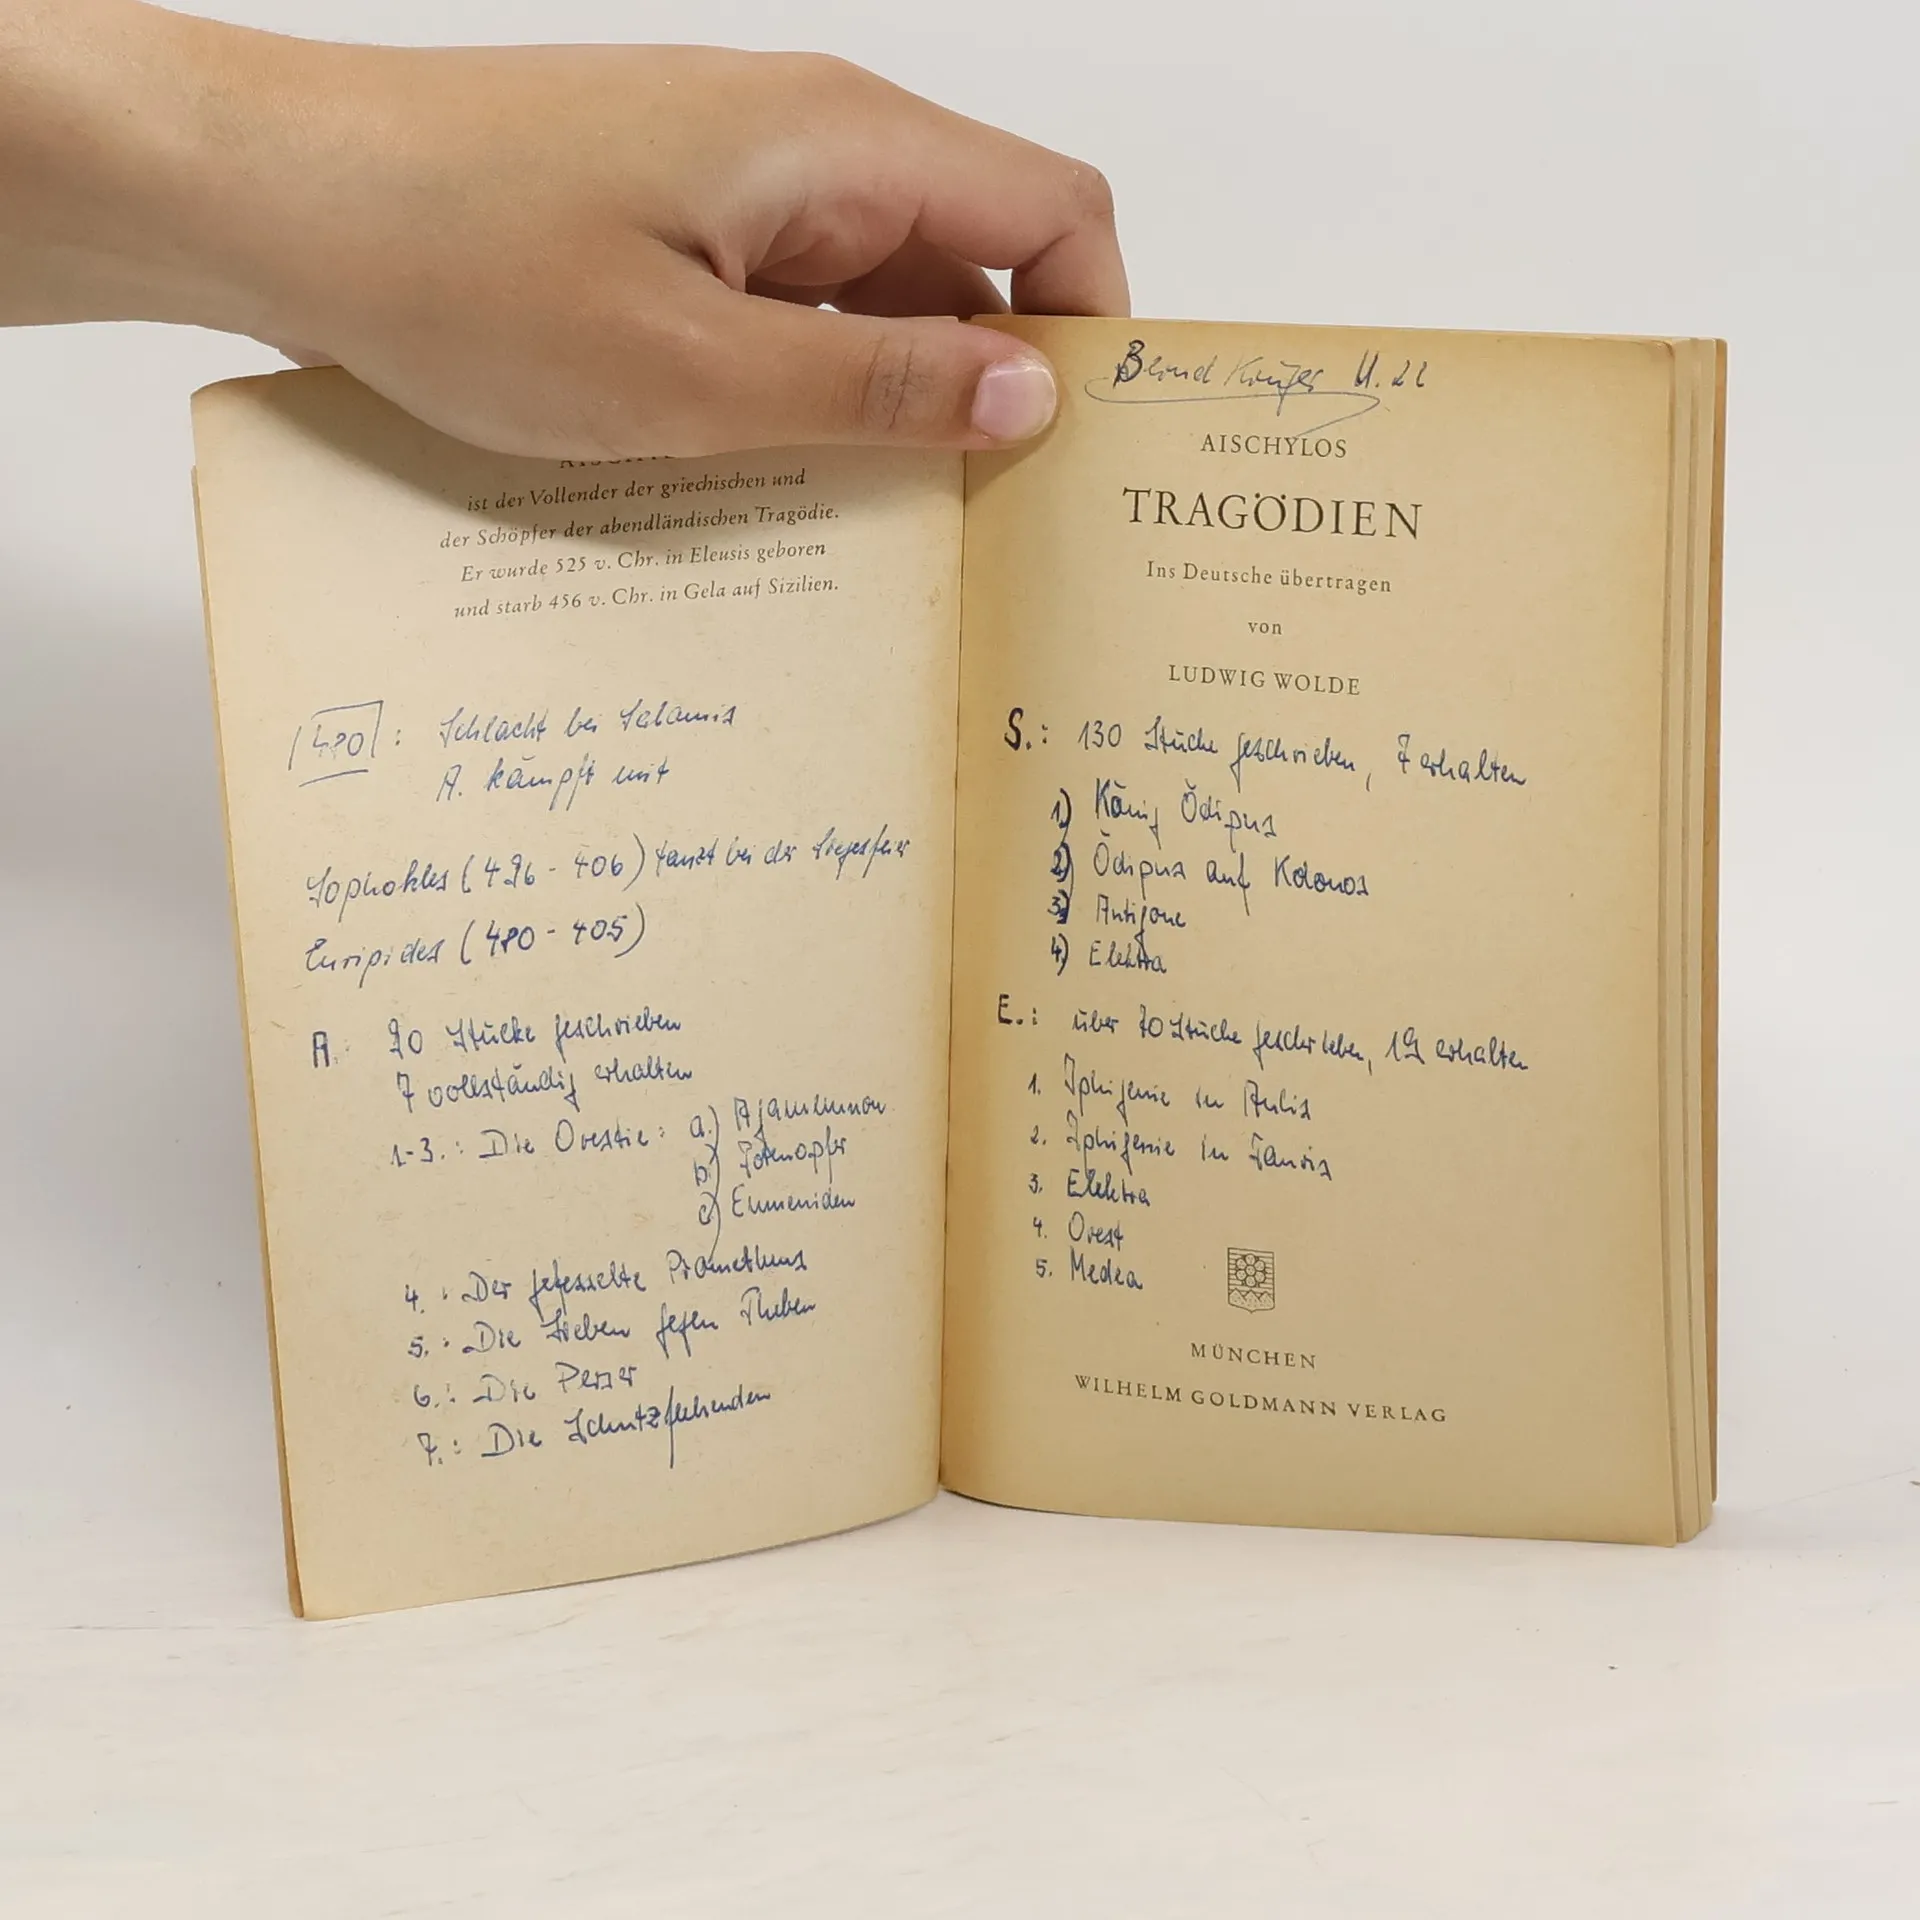 ist der Vollender der griechischen und
der Schöpfer der abendländischen Tragödie.
Er wurde 525 v. Chr. in Eleusis geboren
und starb 456 v. Chr. in Gela auf Sizilien.
480: Schlacht bei Salamis
A. kämpft mit
Sophokles (496 - 406) tanzt bei der Siegesfeier
Euripides (480 - 405)
A.: 90 Stücke geschrieben
7 vollständig erhalten
1-3.: Die Orestie: a.) Agamemnon
b.) Totenopfer
c) Eumeniden
4.: Der gefesselte Prometheus
5.: Die Sieben gegen Theben
6.: Die Perser
7.: Die Schutzflehenden
Bernd Krüger
AISCHYLOS
TRAGÖDIEN
Ins Deutsche übertragen
von
LUDWIG WOLDE
S.: 130 Stücke geschrieben, 7 erhalten
1) König Ödipus
2) Ödipus auf Kolonos
3) Antigone
4) Elektra
E.: über 70 Stücke geschrieben, 19 erhalten
1. Iphigenie in Aulis
2. Iphigenie in Tauris
3. Elektra
4. Orest
5. Medea
MÜNCHEN
WILHELM GOLDMANN VERLAG